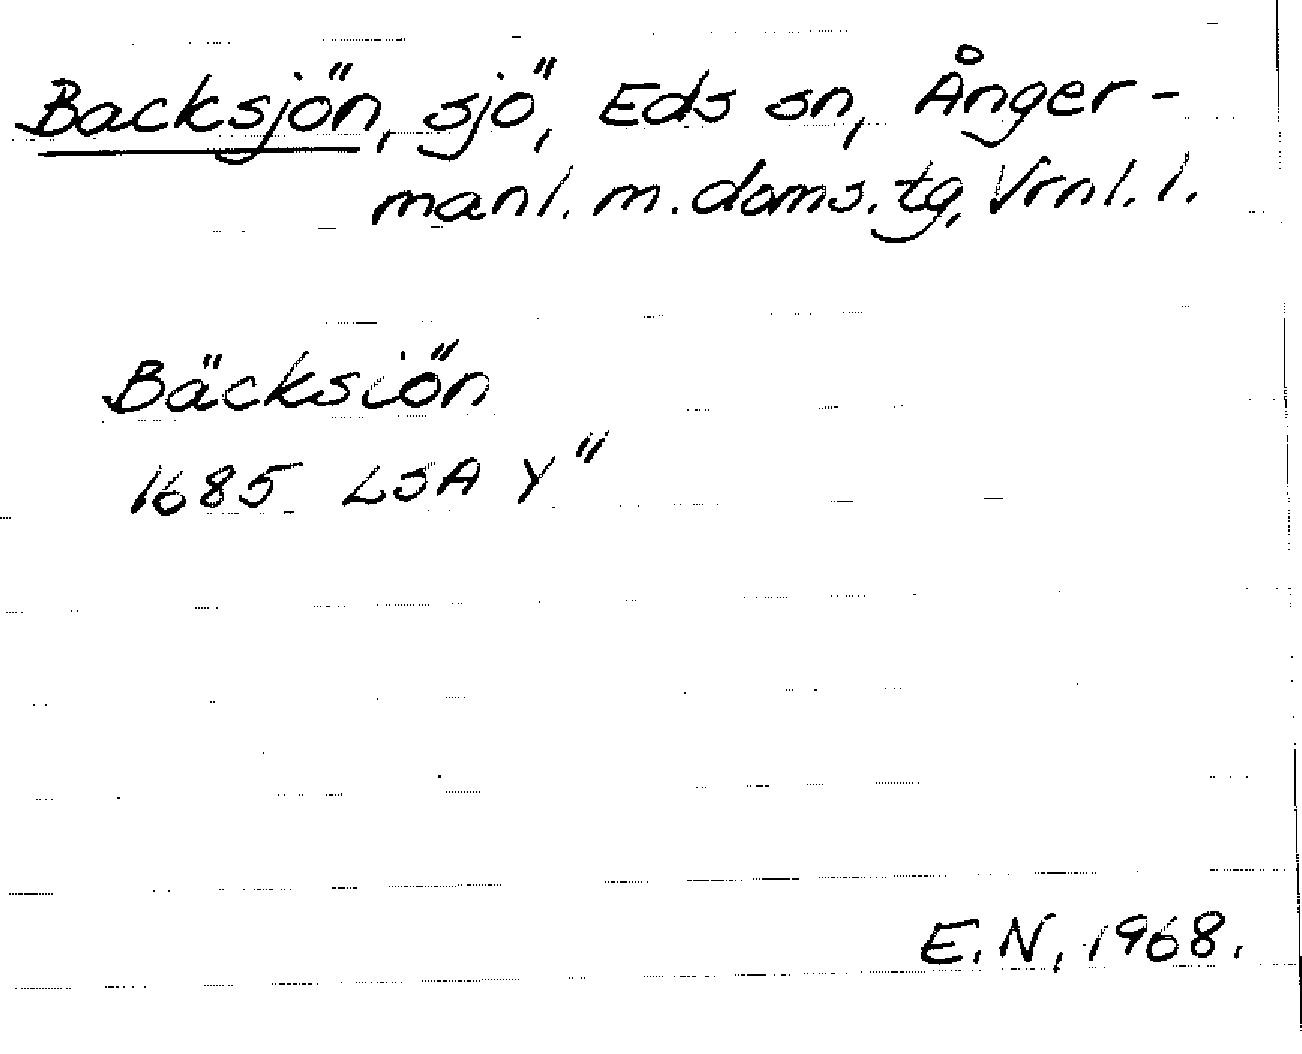 Backsjön, sjö, Eds sn, Ånger-
manl. m. doms. tg, Vrnl. l.
Bäcksiön
1685 LSA Y"
E.N, 1968.